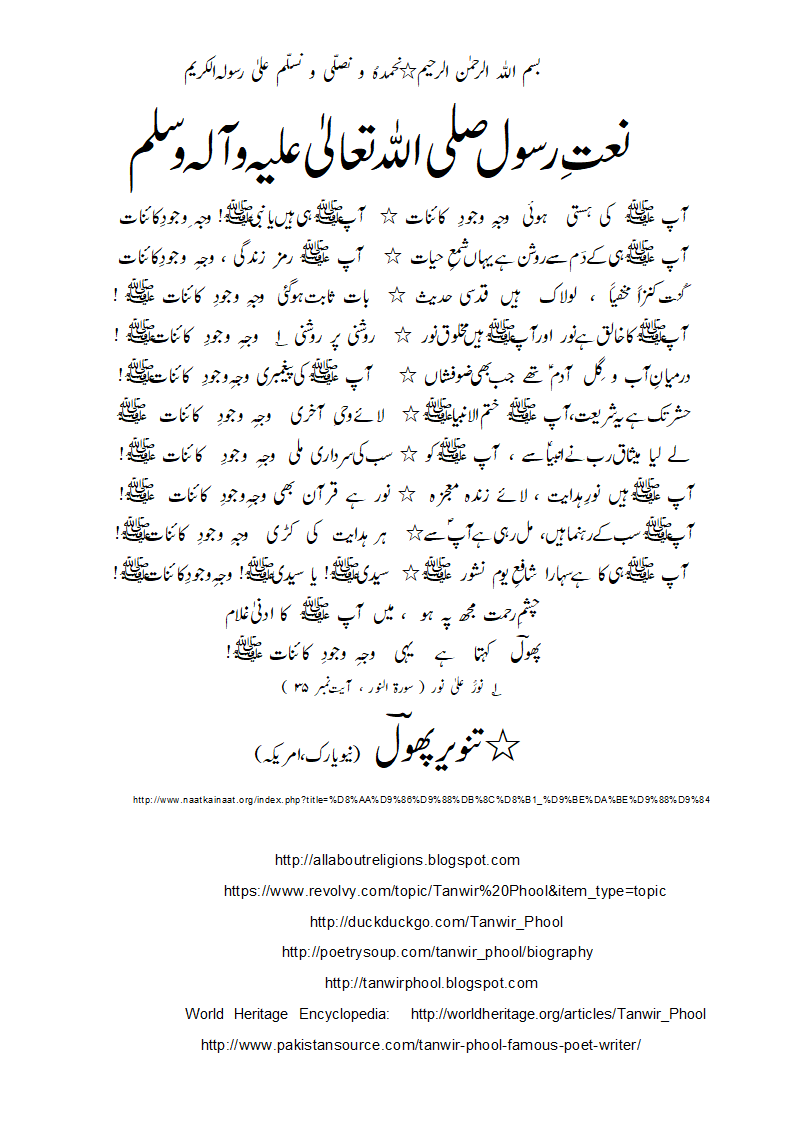 بسم اللہ الرحمٰن الرحیم☆نحمدہٗ و نصلّی و نسلّم علیٰ رسولہ الکریم
نعتِ رسول صلی اللہ تعالیٰ علیہ وآلہ وسلم
آپ ﷺ کی ہستی ہوئی وجہِ وجودِ کائنات ☆ آپ ﷺ ہی ہیں یا نبی ﷺ! وجہِ وجودِ کائنات
آپ ﷺ ہی کے دَم سے روشن ہے یہاں شمعِ حیات ☆ آپ ﷺ رمزِ زندگی ، وجہِ وجودِ کائنات
کُنتُ کنزاً مخفیاً ، لولاک ہیں قدسی حدیث ☆ بات ثابت ہوگئی وجہِ وجودِ کائنات ﷺ !
آپ ﷺ کا خالق ہے نور اور آپ ﷺ ہیں مخلوقِ نور ☆ روشنی پر روشنی ۱؎ وجہِ وجودِ کائنات ﷺ !
درمیانِ آب و گِل آدمؑ تھے جب بھی ضوفشاں ☆ آپ ﷺ کی پیغمبری وجہِ وجودِ کائنات ﷺ!
حشر تک ہے یہ شریعت، آپ ﷺ ختم الانبیا ﷺ ☆ لائے وحیِ آخری وجہِ وجودِ کائنات ﷺ
لے لیا میثاق رب نے انبیاؑ سے ، آپ ﷺ کو ☆ سب کی سرداری ملی وجہِ وجودِ کائنات ﷺ!
آپ ﷺ ہیں نورِ ہدایت ، لائے زندہ معجزہ ☆ نور ہے قرآن بھی وجہِ وجودِ کائنات ﷺ!
آپ ﷺ سب کے رہنما ہیں، مل رہی ہے آپؐ سے ☆ ہر ہدایت کی کڑی وجہِ وجودِ کائنات ﷺ!
آپ ﷺ ہی کا ہے سہارا شافعِ یومِ نشور ﷺ ☆ سیدی ﷺ! یا سیدی ﷺ! وجہِ وجودِ کائنات ﷺ!
چشمِ رحمت مجھ پہ ہو ، میں آپ ﷺ کا ادنیٰ غلام
پھولؔ کہتا ہے یہی وجہِ وجودِ کائنات ﷺ!
۱؎ نورٌ علیٰ نور ( سورۃ النور ، آیت نمبر ۳۵ )
☆ تنویر پھولؔ (نیویارک، امریکہ)
http://www.naatkainaat.org/index.php?title=%D8%AA%D9%86%D9%88%DB%8C%D8%B1_%D9%BE%DA%BE%D9%88%D9%84
http://allaboutreligions.blogspot.com
https://www.revolvy.com/topic/Tanwir%20Phool&item_type=topic
http://duckduckgo.com/Tanwir_Phool
http://poetrysoup.com/tanwir_phool/biography
http://tanwirphool.blogspot.com
World Heritage Encyclopedia: http://worldheritage.org/articles/Tanwir_Phool
http://www.pakistansource.com/tanwir-phool-famous-poet-writer/